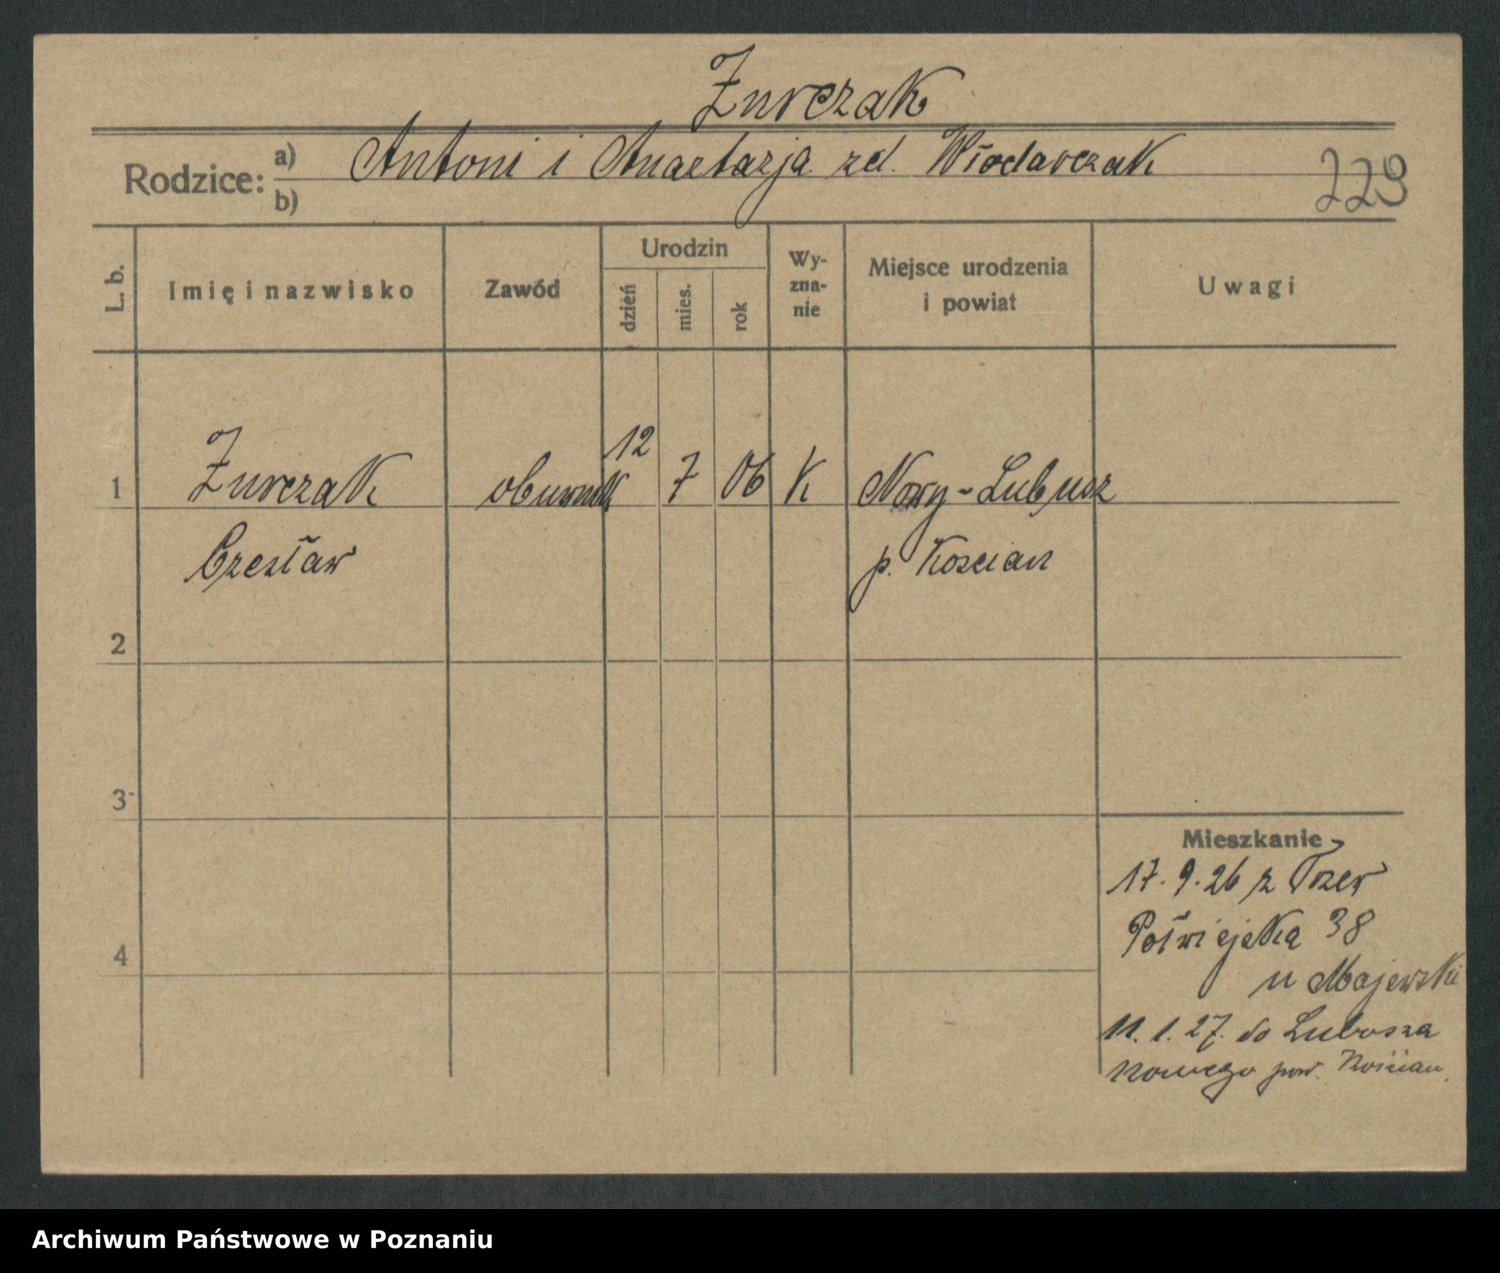 Żurczak
Rodzice: a) Antoni i Anastazja zd. Włodarczak
b)
229
L. b.
Imię i nazwisko
Zawód
Urodzin
dzień
mies.
rok
Wy-
zna-
nie
Miejsce urodzenia
i powiat
Uwagi
1 Żurczak obuwnik 12 7 06 K Nowy-Lubusz
Czesław p. Koscian
2
3
4
Mieszkanie
17. 9. 26 z
Półwiejska 38
u Majewski
11. 1. 27. do Lubosza
nowego pow. Kościan.
Archiwum Państwowe w Poznaniu